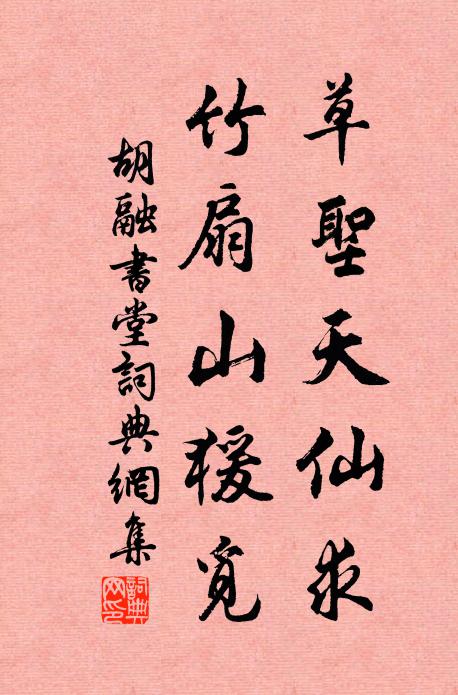 草聖天仙求
竹扇山猨覓
胡融書堂詞典網集
詞典網印